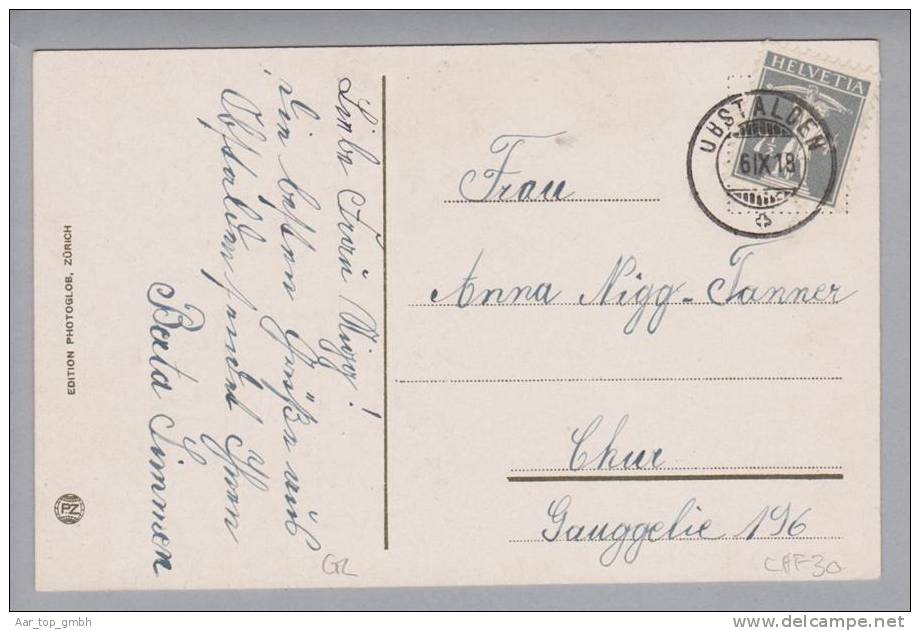 Liebe Frau Nigg!
Die besten Grüße aus
Obstalden sendet Ihnen
Berta Simmen
EDITION PHOTOGLOB, ZÜRICH
PZ
HELVETIA
7½
OBSTALDEN
6IX18
Frau
Anna Nigg-Tanner
Chur
Gauggelie 196
GL
CHF30
Aar_top_gmbh
www.delcampe.net